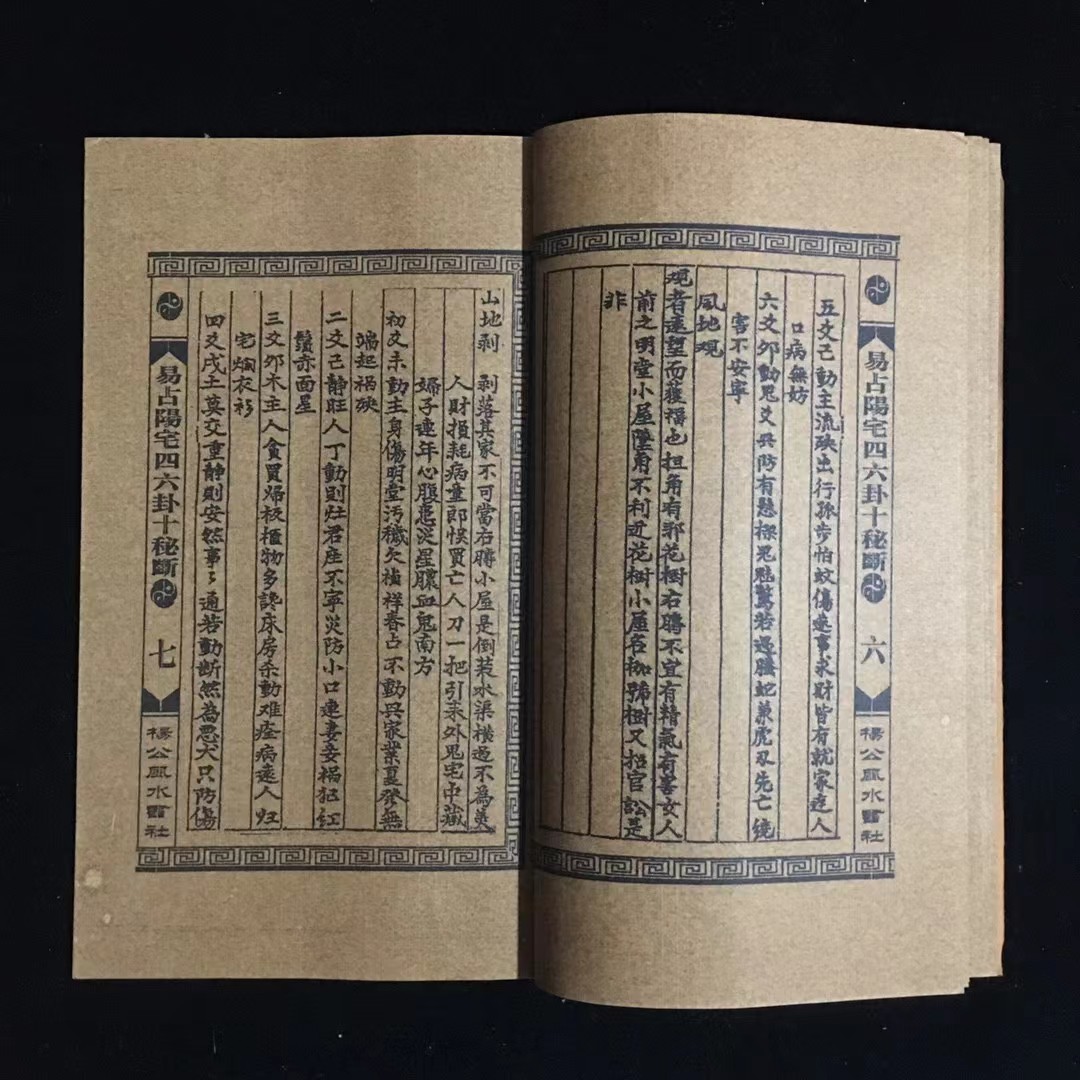 易占陽宅四六卦十秘斷
六
楊公風水書社
五爻己動主流殃出行孫步怕蚊傷遠事求財皆有就家走人
口病無妨
六爻卯動鬼爻兴防有懸樑鬼魅驚若遇騰蛇兼虎刃先亡繞
害不安寧
風地观
观者遠望而獲福也担角有邪花樹右聘不宜有精氣有害女人
前之明堂小屋墜角不利近花樹小屋名枷號樹又招官訟是
非
山地剥 剥落其家不可當右聘小屋是倒装水渠横過不為美
人財損耗病童郎悮買亡人刀一把引來外鬼宅中藏
婦子連年心腹患災星膿血鬼南方
初爻未動主身傷明堂污穢欠楨祥春占不動兴家業夏發無
端起禍殃
二爻己靜旺人丁動則灶君座不寧災防小口連妻妾禍犯紅
鬚赤面星
三爻卯木主人貪買歸板櫃物多讒床房杀動难痊病遠人归
宅焗衣衫
四爻戌土莫交重靜則安然事々通若動断然為惡犬只防傷
易占陽宅四六卦十秘斷
七
楊公風水書社